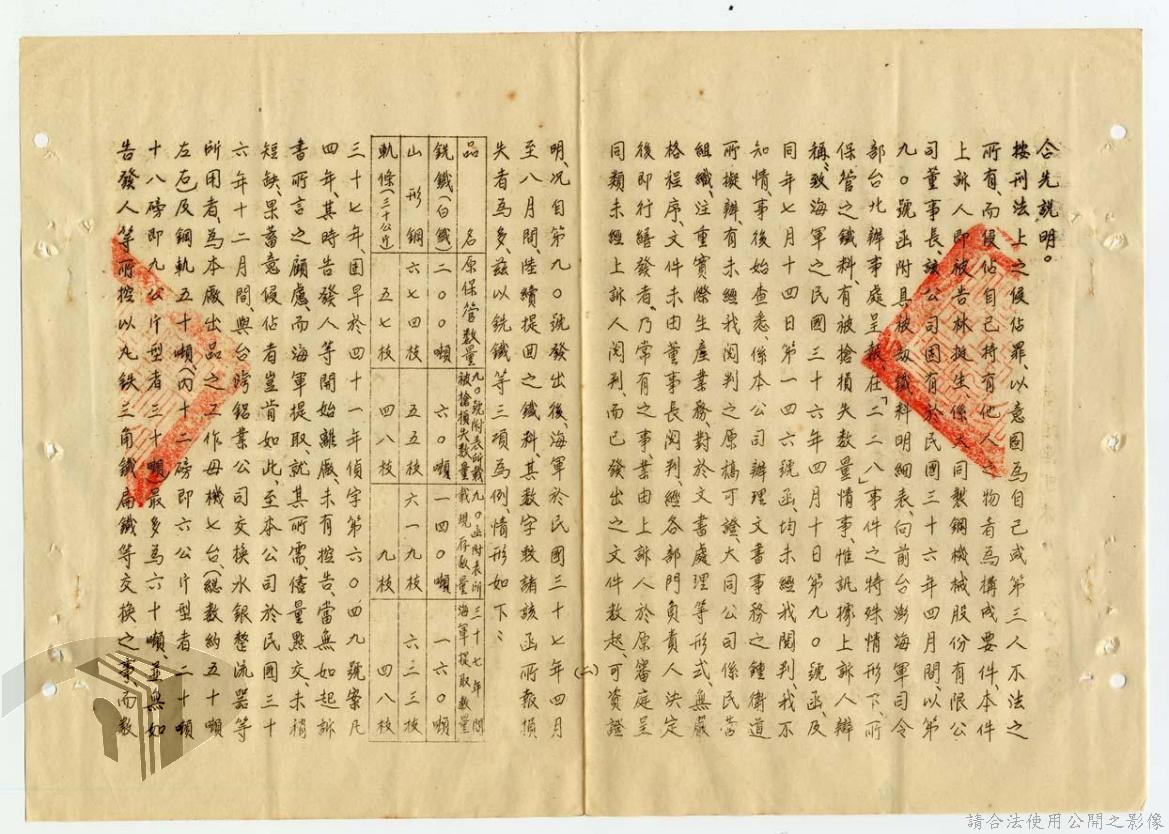 合先説明。
按刑法上之侵佔罪、以意圖為自己或第三人不法之
所有、而侵佔自己持有他人之物者為構成要件、本件
上訴人即被告林挺生、係大同製鋼機械股份有限公
司董事長該公司因有於民國三十六年四月間、以第
九〇號函附具被刼鐵料明細表、向前台澎海軍司令
部台北辦事處呈報、在「二二八」事件之特殊情形下、所
保管之鐵料、有被搶損失数量情事、惟訊據上訴人辯
稱、致海軍之民國三十六年四月十日第九〇號函及
同年七月十四日第一四六號函、均未經我閱判、我不
知情、事後始查悉、係本公司辦理文書事務之鍾衛道
所擬辦、有未經我閱判之原槁可證、大同公司係民营
組織、注重實際生產業務、對於文書處理等形式、無嚴
格程序、文件未由董事長閱判、經各部門負責人決定
後即行繕發者、乃常有之事、業由上訴人於原審庭呈
同類未經上訴人閱判、而已發出之文件数起、可資證
(二)
明、况自第九〇號發出後、海軍於民國三十七年四月
至八月間、陸續提回之鐵料、其数字較諸該函所報損
失者為多、茲以銑鐵等三項為例、情形如下：
品名 原保管数量 九〇號附表所載被搶損失数量 九〇函附表所載現存数量 三十七年間海軍提取数量
銑鐵(白鐵) 二〇〇噸 六〇噸 一四〇噸 一六〇噸
山形鋼 六七四枝 五五枝 六一九枝 六三三枝
軌條(三十公斤) 五七枝 四八枝 九枝 四八枝
三十七年因早於四十一年偵字第六〇四九號案凡
四年、其時告發人等開始離廠、未有控告、當無如起訴
書所言之顧慮、而海軍提取、就其所需、儘量點交、未稍
短缺、果蓄意侵佔者豈肯如此、至本公司於民國三十
六年十二月間、與台灣鋁業公司交换水銀整流器等
所用者、為本廠出品之工作母機七台、(総数約五十噸
左右)及鋼軌五十噸(内十二磅即六公斤型者二十噸
十八磅即九公斤型者三十噸)最多為六十噸並無如
告發人等所控以九鉄三角鐵扁鐵等交换之事、而数
請合法使用公開之影像